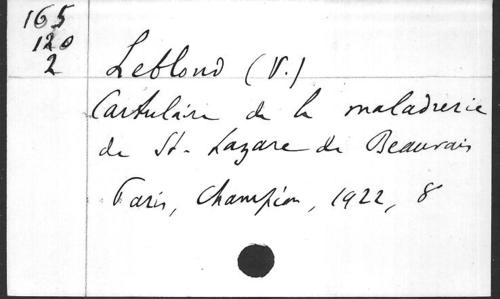 165
120
2
Leblond (V.)
Cartulaire de la maladrerie
de St-Lazare de Beauvais
Paris, Champion, 1922, 8